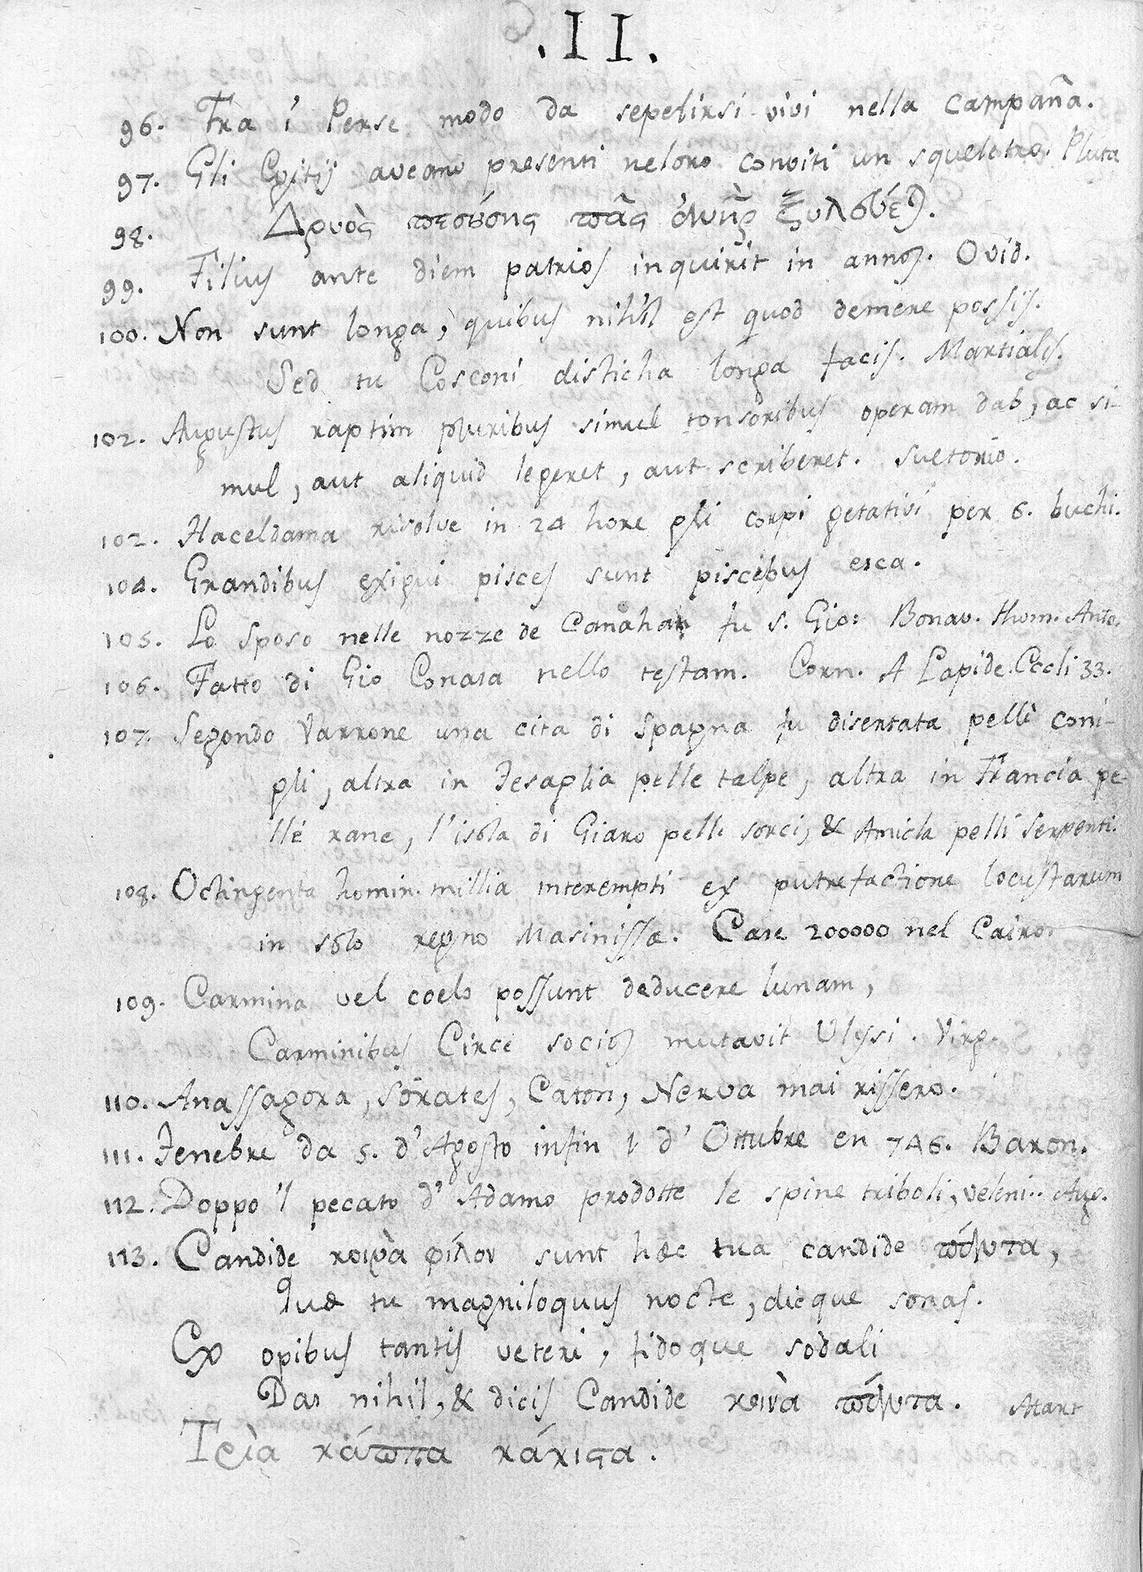 .II.
96. Fra i Perse modo da sepelirsi vivi nella campan̄a.
97. Gli Egitij aveano presenti neloro conviti un squeletro. Pluta
98. Δρυὸς πεσούσης πᾶς ἀνὴρ ξυλεύε).
99. Filius ante diem patrios inquirit in annos. Ovid.
100. Non sunt longa, quibus nihil est quod demere possis.
Sed tu Cosconi disticha longa facis. Martialis.
102. Augustus raptim pluribus simul tonsoribus operam dab, ac si-
mul, aut aliquid legeret, aut scriberet. Suetonio.
102. Haceldama risolve in 24 hore gli corpi getativi per 6. buchi.
104. Grandibus exigui pisces sunt piscibus esca.
105. Lo sposo nelle nozze de Canahan fu s. Gio: Bonav. thom. Anto.
106. Fatto di Gio Conasa nello testam. Corn. A Lapide. Eccli 33.
107. Segondo Varrone una cita di Spagna fu disertata pelli coni-
gli, altra in Tesaglia pelle talpe, altra in Francia pe-
lle rane, l'isola di Giaro pelli sorci, & Amicla pelli serpenti.
108. Octingenta homin. millia interempti ex putrefactione locustarum
in solo regno Masinissæ. Case 200000 nel Cairo.
109. Carmina vel coelo possunt deducere lunam,
Carminibus Circe socios mutavit Ulysi. Virg.
110. Anassagora, Sorates, Caton, Nerva mai rissero.
111. Tenebre da 5. d'Agosto infin 1 d' Ottubre en 746. Baron.
112. Doppo 'l pecato d' Adamo prodotte le spine triboli, veleni.. Aug.
113. Candide κοινὰ φίλον sunt hæc tua candide πάντα,
Quæ tu magniloquus nocte, dieque sonas.
Ex opibus tantis veteri, fidoque sodali
Das nihil, & dicis Candide κοινὰ πάντα. Mart
Τρία κάππα κάκιστα.